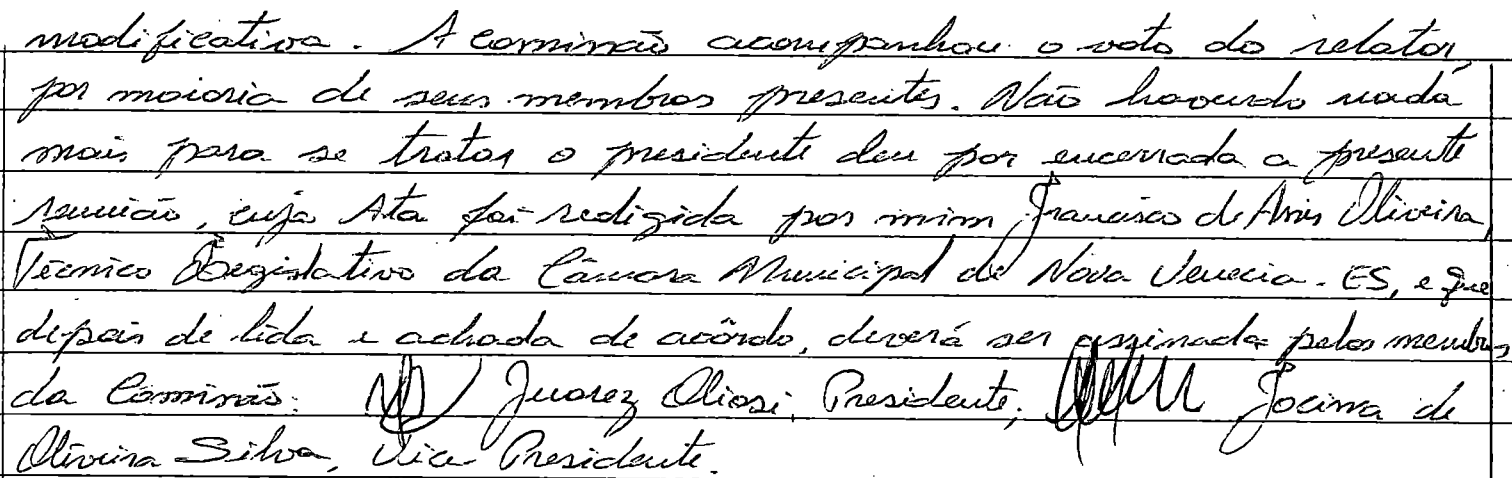 modificativa. A comissão acompanhou o voto do relator,
por maioria de seus membros presentes. Não havendo nada
mais para se tratar o presidente deu por encerrada a presente
reunião, cuja Ata foi redigida por mim Francisco de Assis Oliveira,
Técnico Legislativo da Câmara Municipal de Nova Venecia-ES, e que
depois de lida e achada de acôrdo, deverá ser assinada pelos membros
da Comissão: Juarez Oliosi, Presidente; Jocima de
Oliveira Silva, Vice Presidente.